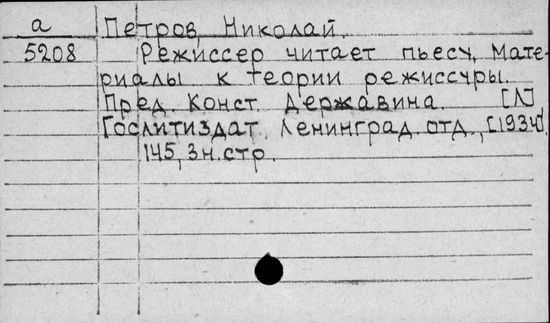 а Петров, Николай.
5208 Режиссер читает пьесу. Мате-
риалы к теории режиссуры.
Пред. Конст Державина. [Л]
Гослитиздат, Ленинград. отд., [1934].
145, 3 н. стр.